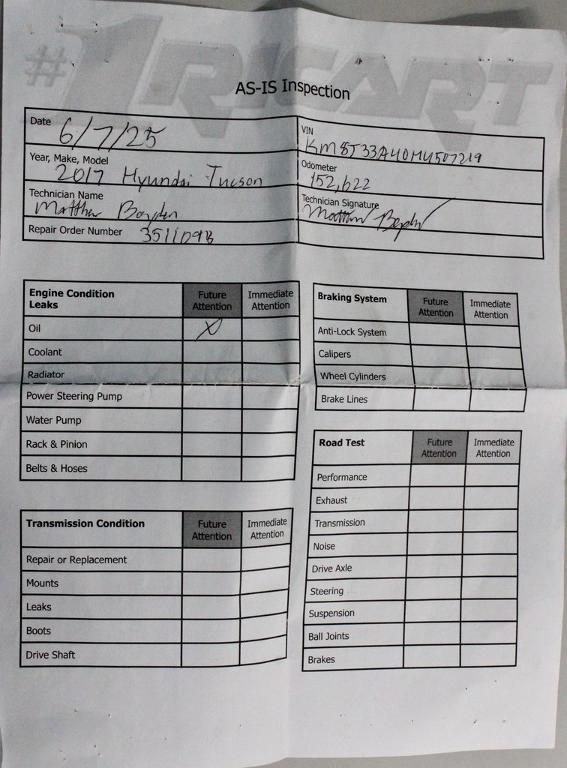 #1 RICART
AS-IS Inspection
Date 6/7/25
VIN KM8J33A40HU507219
Year, Make, Model 2017 Hyundai Tucson
Odometer 152,622
Technician Name Matthew Boyden
Technician Signature Matthew Boyden
Repair Order Number
Engine Condition Leaks Future Attention Immediate Attention
Oil X
Coolant
Radiator
Power Steering Pump
Water Pump
Rack & Pinion
Belts & Hoses
Braking System Future Attention Immediate Attention
Anti-Lock System
Calipers
Wheel Cylinders
Brake Lines
Transmission Condition Future Attention Immediate Attention
Repair or Replacement
Mounts
Leaks
Boots
Drive Shaft
Road Test Future Attention Immediate Attention
Performance
Exhaust
Transmission
Noise
Drive Axle
Steering
Suspension
Ball Joints
Brakes